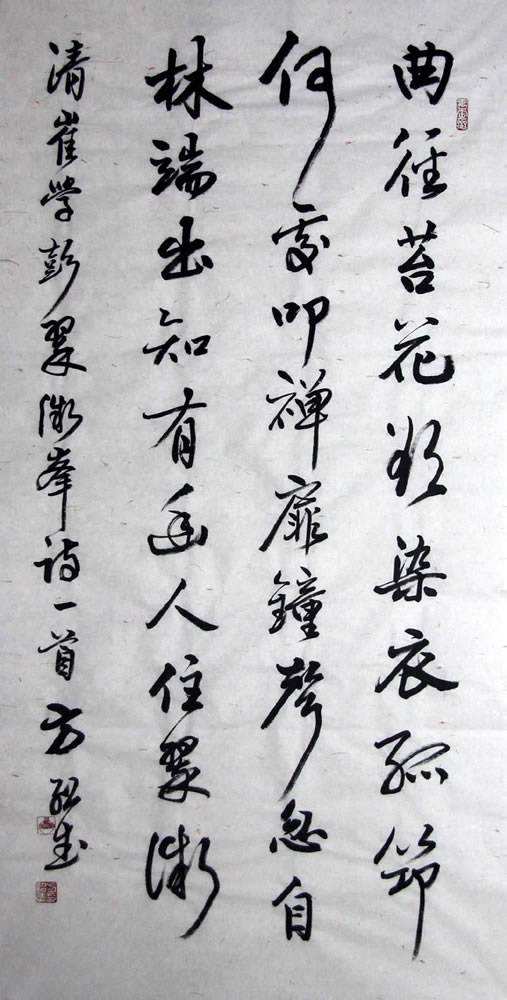 曲径苔花欲染衣孤筇
何处叩禅扉钟声忽自
林端出知有幽人住翠微
清崔学彭翠微峰诗一首方